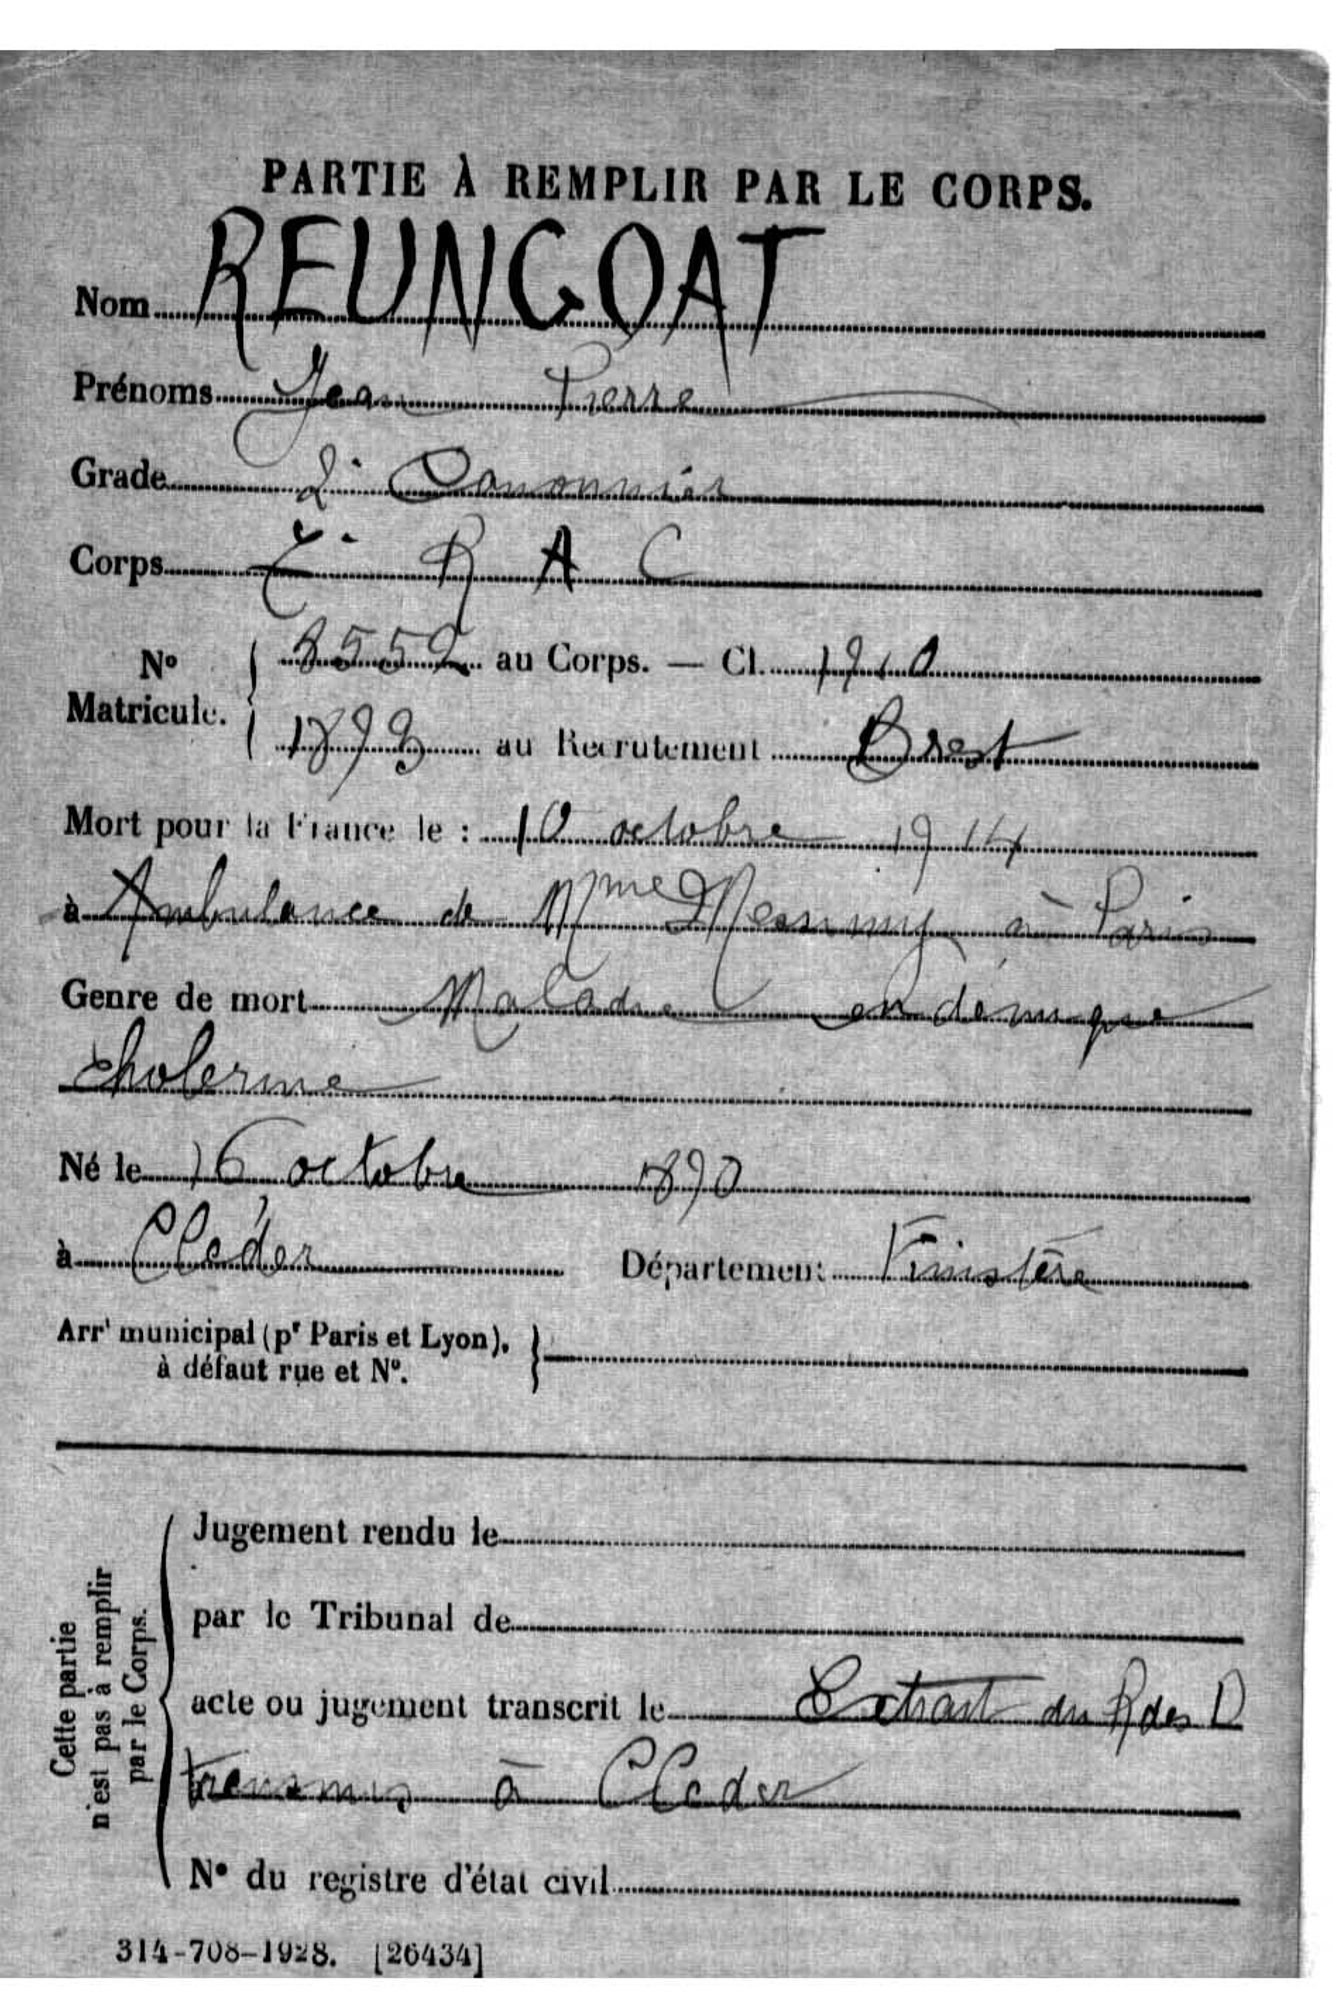 PARTIE À REMPLIR PAR LE CORPS.
Nom REUNGOAT
Prénoms Jean Pierre
Grade 2e Canonnier
Corps R A C
No Matricule. 8552 au Corps. — Cl. 1910
1893 au Recrutement Brest
Mort pour la France le : 10 octobre 1914
à Ambulance de Mme à Paris
Genre de mort Maladie endémique
cholerine
Né le 16 octobre 1890
à Cléder Département Finistère
Arrt municipal (pr Paris et Lyon),
à défaut rue et No.
Cette partie
n'est pas à remplir
par le Corps.
Jugement rendu le
par le Tribunal de
acte ou jugement transcrit le Extrait du R des D
transmis à Cleder
No du registre d'état civil
314-708-1928. [26434]